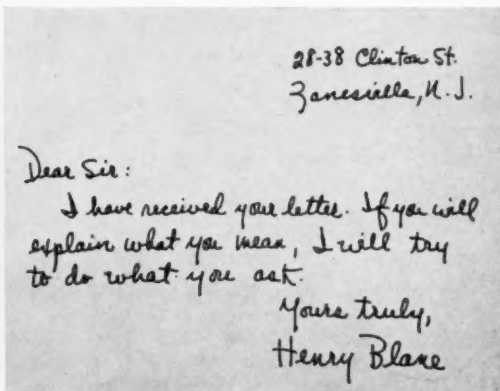 28-38 Clinton St.
Zanesville, N. J.
Dear Sir:
I have received your letter. If you will
explain what you mean, I will try
to do what you ask.
Yours truly,
Henry Blane